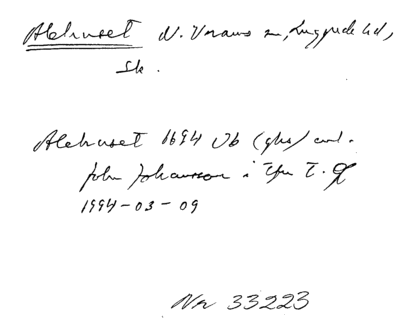 Alehuset N. Vrams sn, Luggude hd,
Sk.
Alehuset 1694 Ub (ghs) enl.
John Johansson i
1994-03-09
Nr 33223